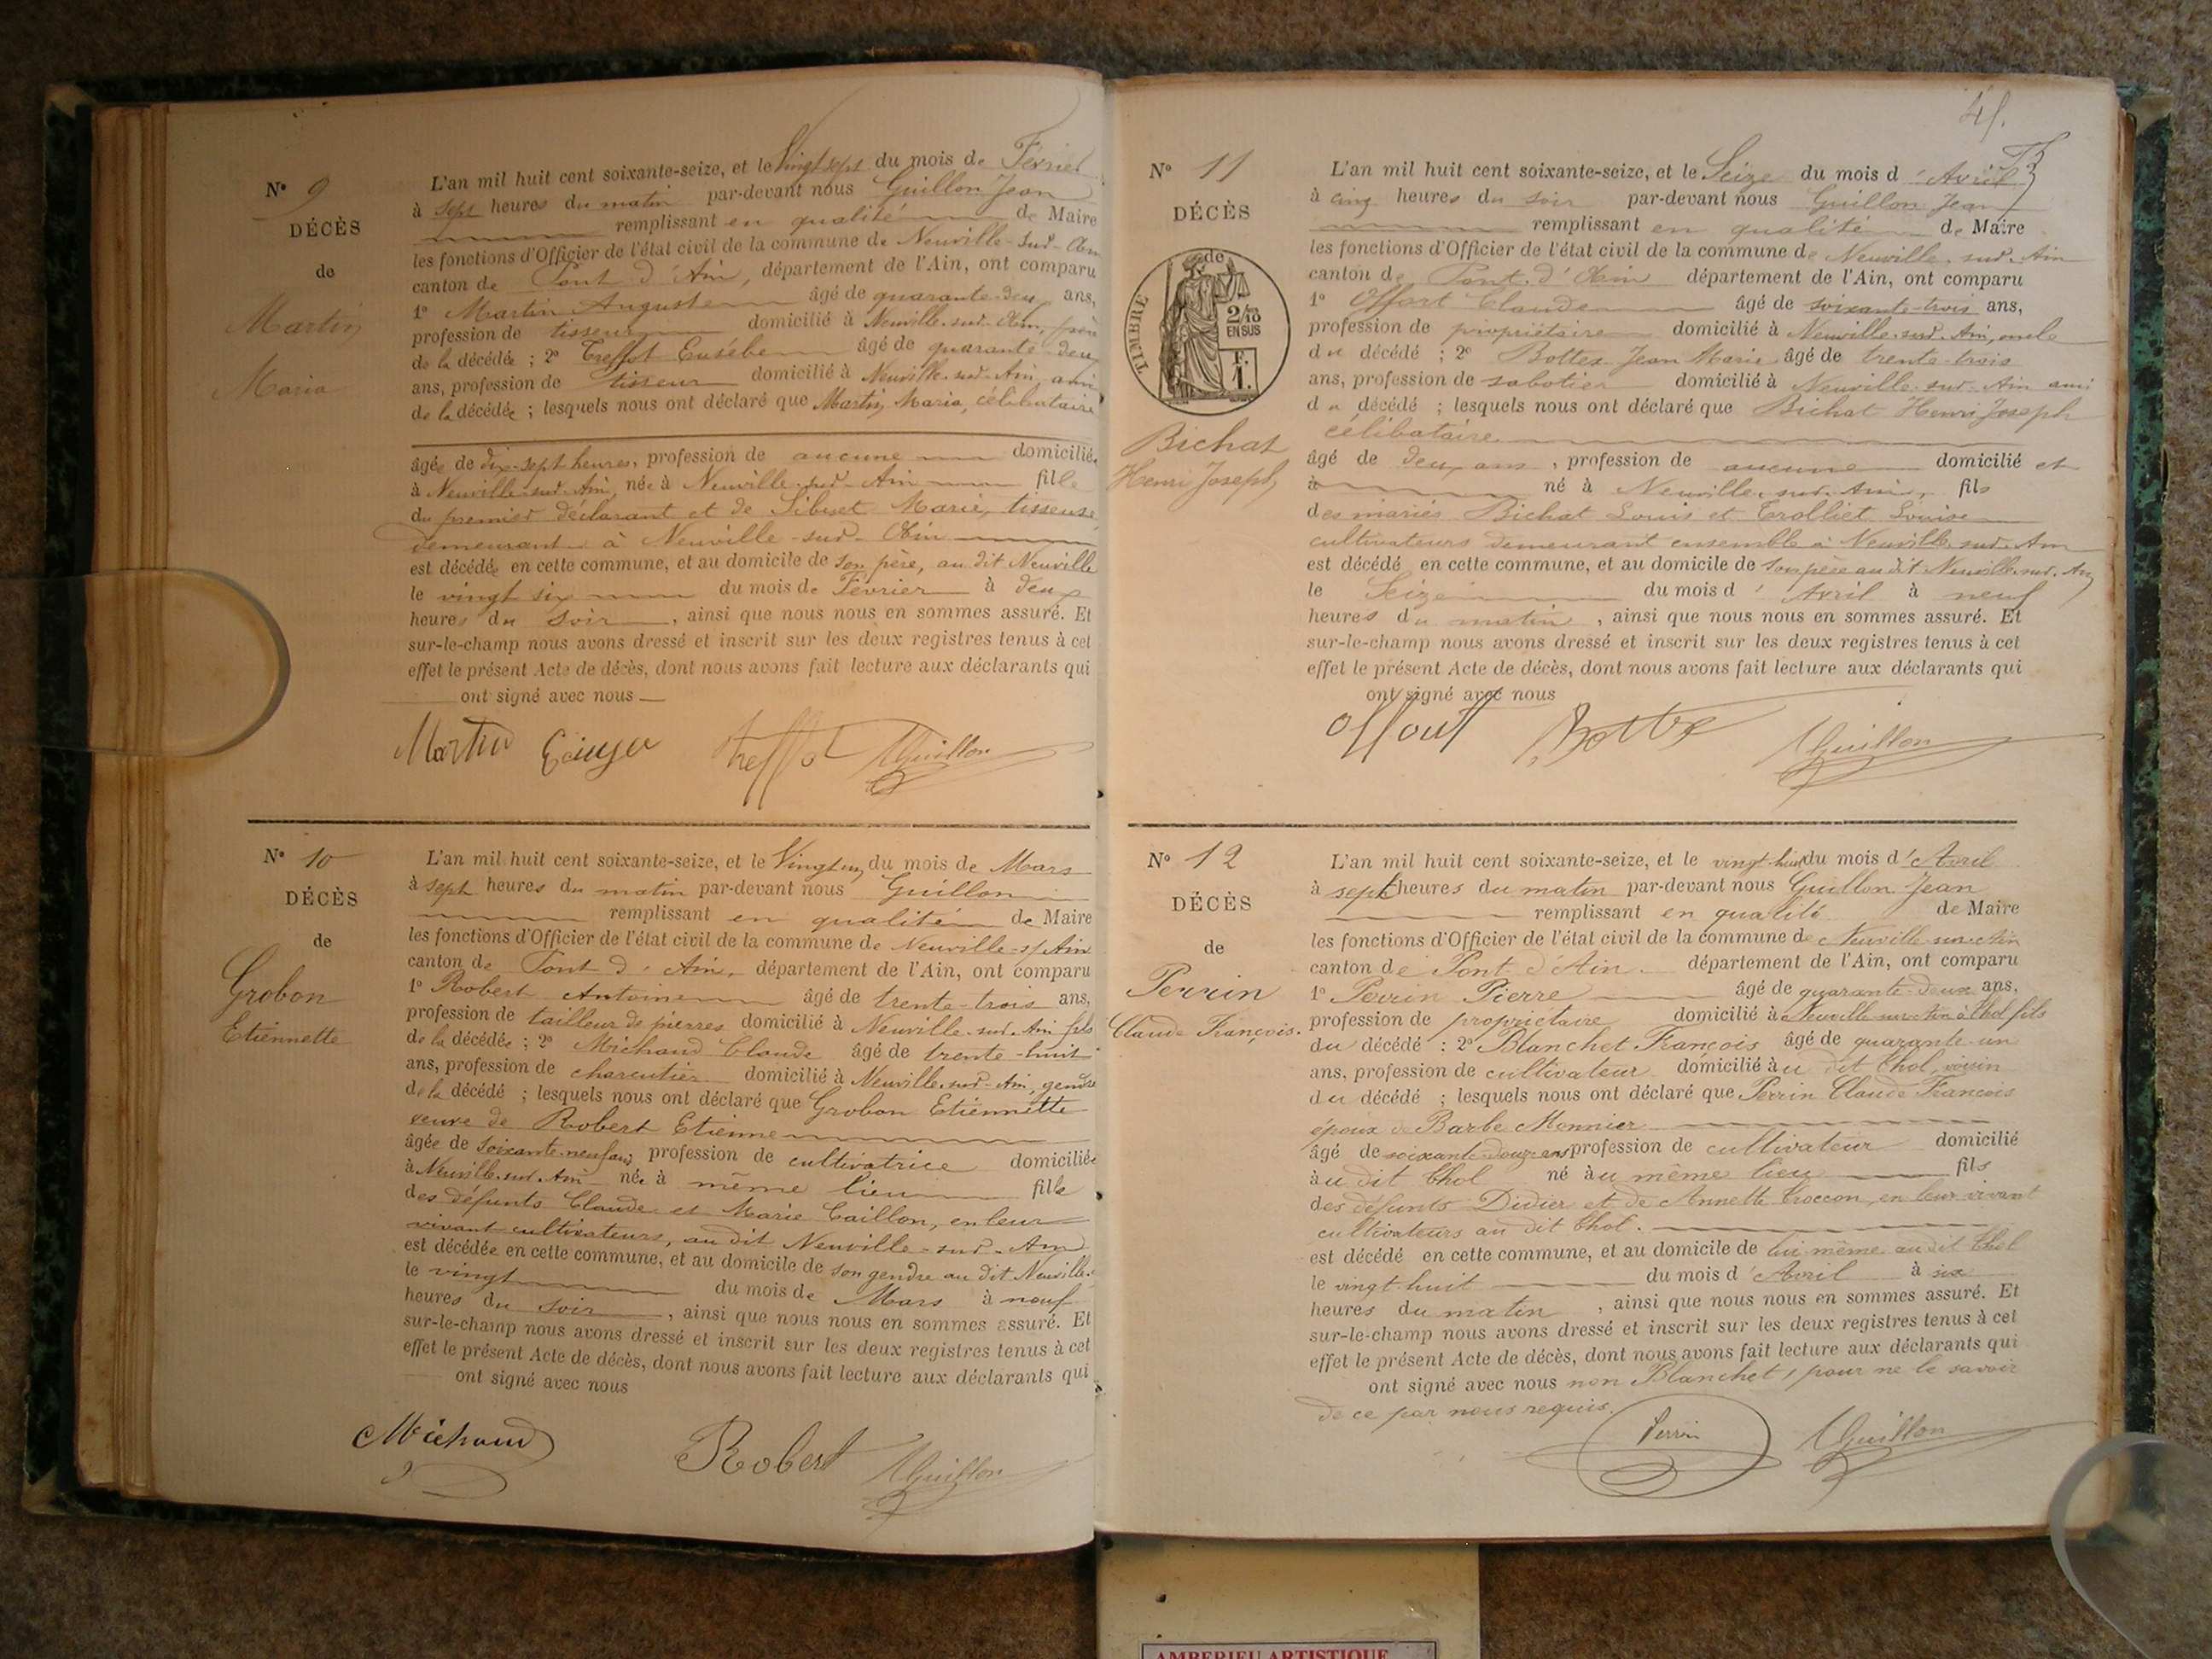 N° 9
DÉCÈS
de
Martin
Maria
L'an mil huit cent soixante-seize, et le Vingt sept du mois de Février
à sept heures du matin par-devant nous Guillon Jean
remplissant en qualité de Maire
les fonctions d'Officier de l'état civil de la commune de Neuville-sur-Ain
canton de Pont d'Ain, département de l'Ain, ont comparu
1° Martin Auguste âgé de quarante-deux ans,
profession de tisseur domicilié à Neuville-sur-Ain, père
de la décédée ; 2° Treffot Eusébe âgé de quarante-deux
ans, profession de tisseur domicilié à Neuville-sur-Ain, ami
de la décédée ; lesquels nous ont déclaré que Martin Maria, célibataire
âgée de dix-sept heures, profession de aucune domiciliée
à Neuville-sur-Ain, née à Neuville-sur-Ain fille
du premier déclarant et de Sibuet Marie, tisseuse,
demeurant à Neuville-sur-Ain
est décédée en cette commune, et au domicile de son père, au dit Neuville
le vingt six du mois de Février à deux
heures du soir, ainsi que nous nous en sommes assuré. Et
sur-le-champ nous avons dressé et inscrit sur les deux registres tenus à cet
effet le présent Acte de décès, dont nous avons fait lecture aux déclarants qui
ont signé avec nous
Martin treffot Guillon
N° 10
DÉCÈS
de
Grobon
Etiennette
L'an mil huit cent soixante-seize, et le Vingt un du mois de Mars
à sept heures du matin par-devant nous Guillon
remplissant en qualité de Maire
les fonctions d'Officier de l'état civil de la commune de Neuville-s/Ain
canton de Pont d'Ain, département de l'Ain, ont comparu
1° Robert Antoine âgé de trente-trois ans,
profession de tailleur de pierres domicilié à Neuville-sur-Ain fils
de la décédée ; 2° Michaud Claude âgé de trente-huit
ans, profession de charcutier domicilié à Neuville-sur-Ain, gendre
de la décédé ; lesquels nous ont déclaré que Grobon Etiennette
veuve de Robert Etienne
âgée de soixante-neuf ans, profession de cultivatrice domiciliée
à Neuville-sur-Ain née à même lieu fille
des défunts Claude et Marie Caillon, en leur
vivant cultivateurs, au dit Neuville-sur-Ain
est décédée en cette commune, et au domicile de son gendre au dit Neuville
le vingt du mois de Mars à neuf
heures du soir, ainsi que nous nous en sommes assuré. Et
sur-le-champ nous avons dressé et inscrit sur les deux registres tenus à cet
effet le présent Acte de décès, dont nous avons fait lecture aux déclarants qui
ont signé avec nous
Michaud Robert Guillon
N° 11
DÉCÈS
de
TIMBRE
2/10
EN SUS
F.
1.
Bichat
Henri Joseph
L'an mil huit cent soixante-seize, et le Seize du mois d'Avril
à cinq heures du soir par-devant nous Guillon Jean
remplissant en qualité de Maire
les fonctions d'Officier de l'état civil de la commune de Neuville-sur-Ain
canton de Pont-d'Ain département de l'Ain, ont comparu
1° Offort Claude âgé de soixante-trois ans,
profession de propriétaire domicilié à Neuville-sur-Ain, oncle
du décédé ; 2° Bottex Jean Marie âgé de trente-trois
ans, profession de sabotier domicilié à Neuville-sur-Ain ami
du décédé ; lesquels nous ont déclaré que Bichat Henri Joseph
célibataire
âgé de deux ans, profession de aucune domicilié et
à né à Neuville-sur-Ain, fils
des mariés Bichat Louis et Trolliet Louise
cultivateurs demeurant ensemble à Neuville-sur-Ain
est décédé en cette commune, et au domicile de son père au dit Neuville-sur-Ain
le Seize du mois d'Avril à neuf
heures du matin, ainsi que nous nous en sommes assuré. Et
sur-le-champ nous avons dressé et inscrit sur les deux registres tenus à cet
effet le présent Acte de décès, dont nous avons fait lecture aux déclarants qui
ont signé avec nous
Guillon
N° 12
DÉCÈS
de
Perrin
Claude François.
L'an mil huit cent soixante-seize, et le vingt-huit du mois d'Avril
à sept heures du matin par-devant nous Guillon Jean
remplissant en qualité de Maire
les fonctions d'Officier de l'état civil de la commune de Neuville sur Ain
canton de Pont d'Ain. département de l'Ain, ont comparu
1° Perrin Pierre âgé de quarante-deux ans,
profession de propriétaire domicilié à Neuville sur Ain à Thol fils
du décédé : 2° Blanchet François âgé de quarante-un
ans, profession de cultivateur domicilié au dit Thol, voisin
du décédé ; lesquels nous ont déclaré que Perrin Claude François
époux de Barbe Monnier
âgé de soixante-douze ans profession de cultivateur domicilié
au dit Thol né au même lieu fils
des défunts Didier et de Annette Troccon, en leur vivant
cultivateurs au dit Thol.
est décédé en cette commune, et au domicile de lui-même au dit Thol
le vingt-huit du mois d'Avril à six
heures du matin, ainsi que nous nous en sommes assuré. Et
sur-le-champ nous avons dressé et inscrit sur les deux registres tenus à cet
effet le présent Acte de décès, dont nous avons fait lecture aux déclarants qui
ont signé avec nous non Blanchet, pour ne le savoir
de ce par nous requis.
Perrin Guillon
AMBERIEU ARTISTIQUE